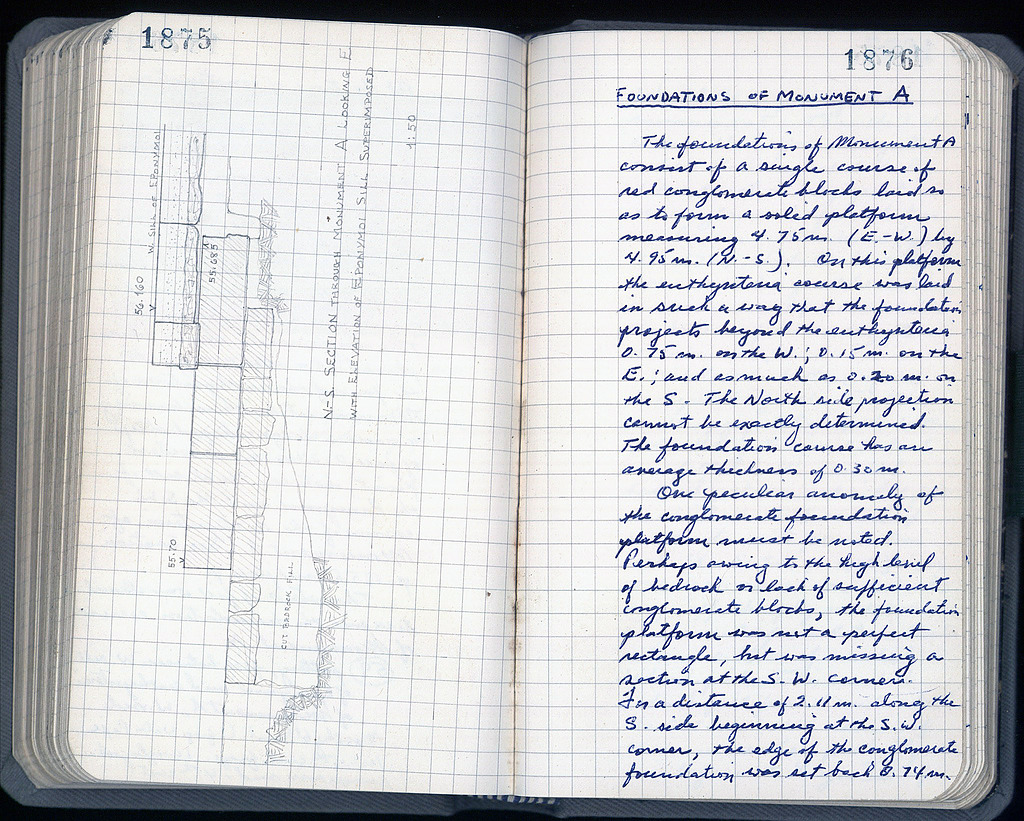 1875
W. SILL OF EPONYMOI
56.160
55.685
55.70
CUT BEDROCK FILL
N-S. SECTION THROUGH MONUMENT A LOOKING E
WITH ELEVATION OF EPONYMOI SILL SUPERIMPOSED
1:50
1876
FOUNDATIONS OF MONUMENT A
The foundations of Monument A
consist of a single course of
red conglomerate blocks laid so
as to form a solid platform
measuring 4.75m. (E.-W.) by
4.95m. (N.-S.). On this platform
the euthynteria course was laid
in such a way that the foundation
projects beyond the euthynteria
0.75m. on the W.; 0.15m. on the
E.; and as much as 0.20m. on
the S. The North side projection
cannot be exactly determined.
The foundation course has an
average thickness of 0.30m.
One peculiar anomaly of
the conglomerate foundation
platform must be noted.
Perhaps owing to the high level
of bedrock or lack of sufficient
conglomerate blocks, the foundation
platform was not a perfect
rectangle, but was missing a
section at the S.W. corner.
For a distance of 2.11m. along the
S. side beginning at the S.W.
corner, the edge of the conglomerate
foundation was set back 0.74m.